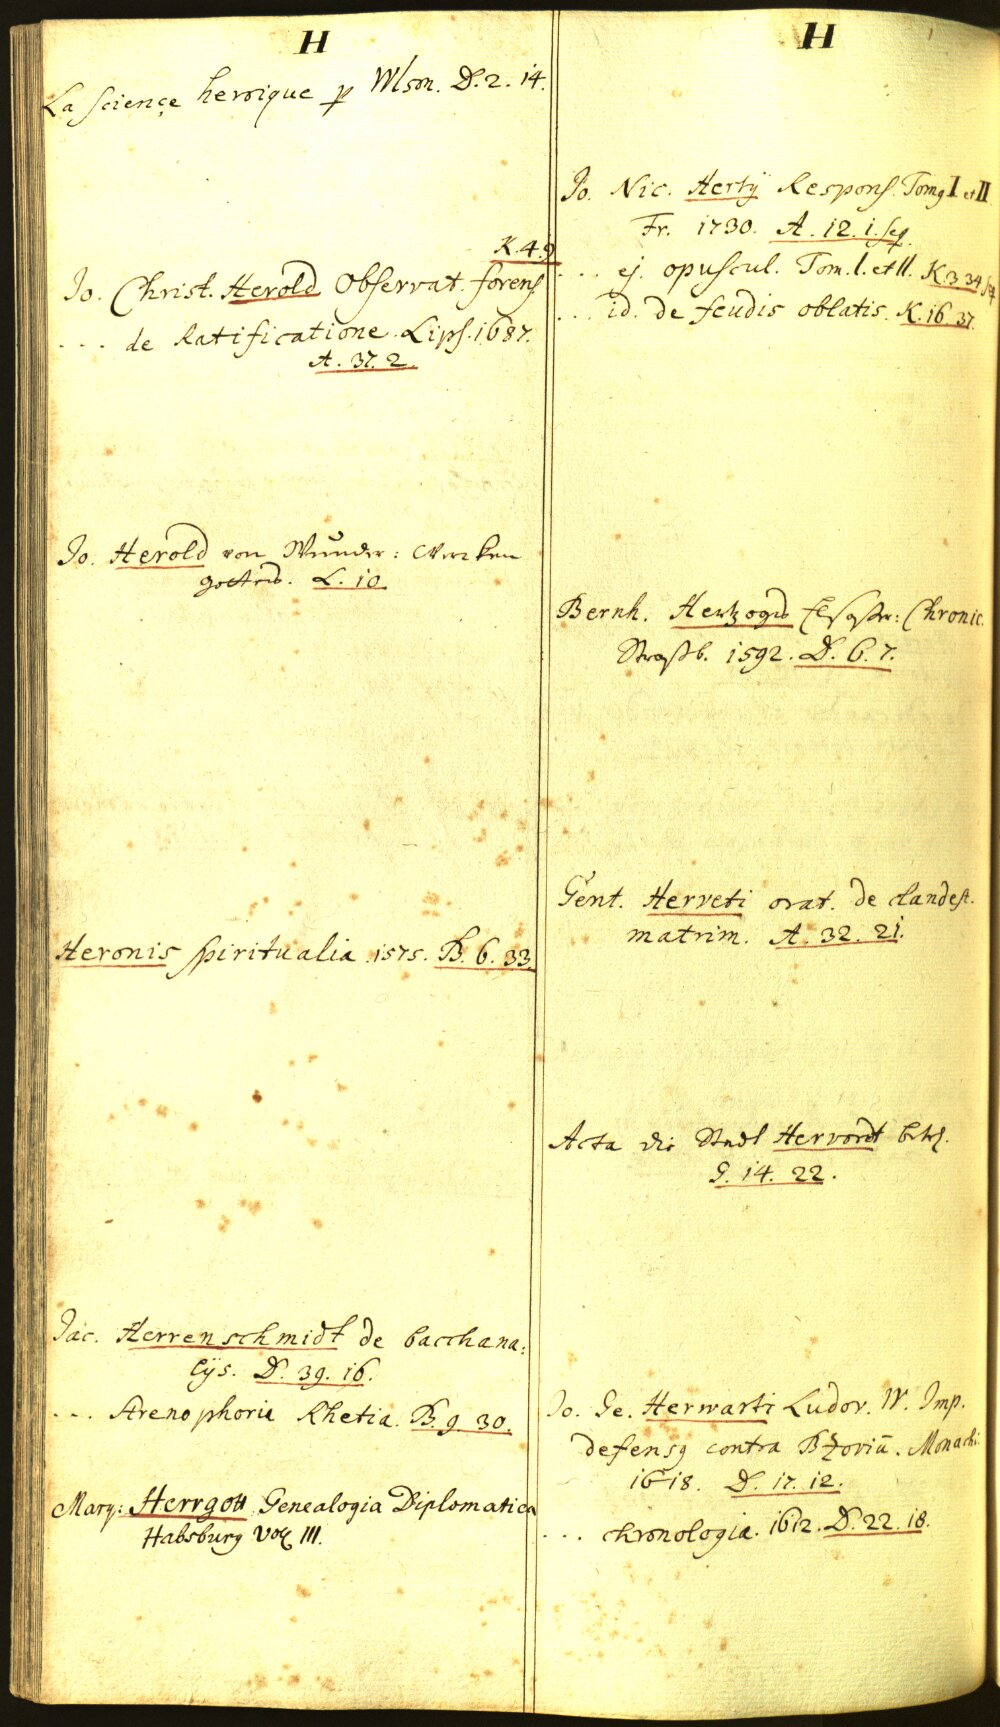 H
La science heroique p Wlson. D. 2. 14.
K. 4. 9
Jo. Christ. Herold Observat. forens.
... de Ratificatione. Lips. 1687.
A. 37. 2.
Jo. Herold von Wunder: Wercken
L. 10.
Heronis spiritualia. 1575. B. 6. 33.
Jac. Herrenschmidt de bacchana:
lijs. D. 39. 16.
... Arenophoria Rhetia. B. 9. 30.
Marq: Herrgott Genealogia Diplomatica
Habsburg Vol III.
H
Jo. Nic. Hertij Respons. Tomg I et II
Fr. 1730. A. 12. 1. seq.
... ej. opuscul. Tom. I. et II. K 3 34 seq
... id. de feudis oblatis. K. 16. 37.
Bernh. Hertzogs Elsasser: Chronic.
Strassb. 1592. D. 6. 7.
Gent. Herveti orat. de clandest.
matrim. A. 32. 21.
Acta die Stadt Hervordt betr.
G. 14. 22.
Jo. Ge. Herwarti Ludov. IV. Imp.
defensg contra Bzoviū. Monachi.
1618. D. 17. 12.
... chronologia. 1612. D. 22. 18.